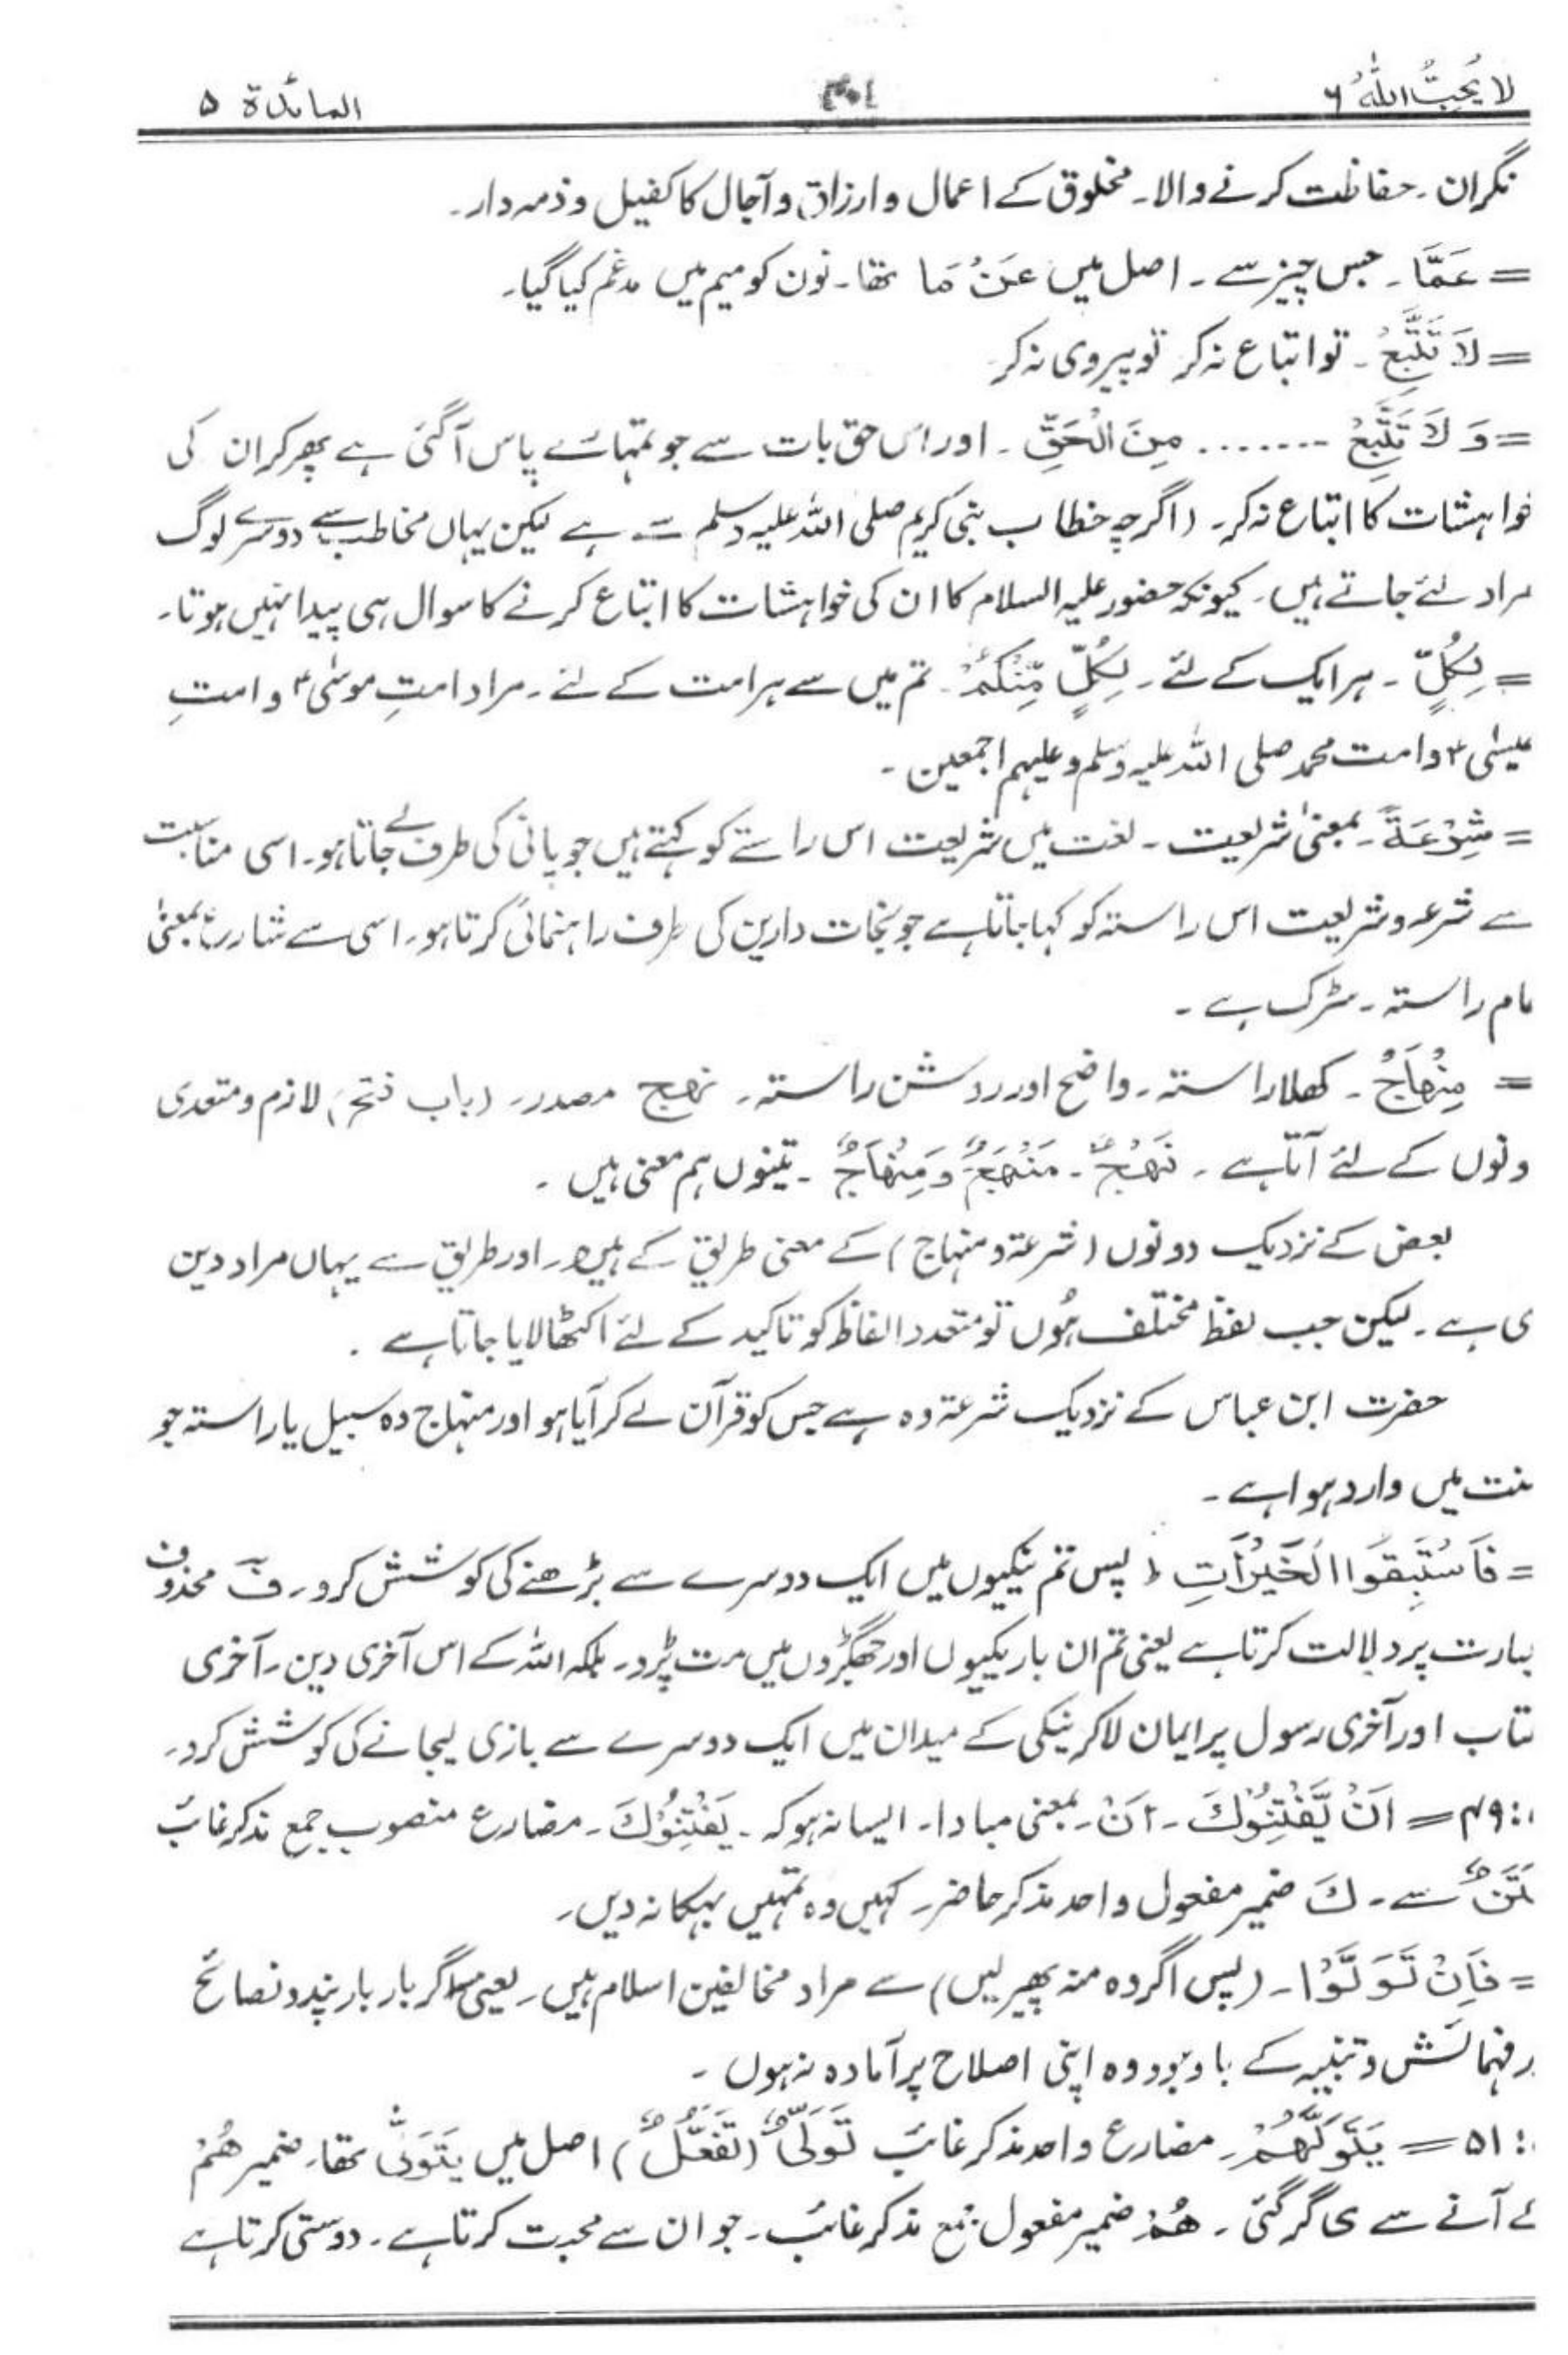 لا یُحِبُّ اللّٰہُ ۶ ۳۰۴ المائدۃ ۵
نگران۔ حفاظت کرنے والا۔ مخلوق کے اعمال و ارزاق و آجال کا کفیل و ذمہ دار۔
= عَمَّا۔ جس چیز سے۔ اصل میں عَنْ مَا تھا۔ نون کو میم میں مدغم کیا گیا۔
= لَا تَتَّبِعْ۔ تو اتباع نہ کر تو پیروی نہ کر
= وَ لَا تَتَّبِعْ ........ مِنَ الْحَقِّ۔ اور اس حق بات سے جو تمہارے پاس آگئی ہے پھر کر ان کی
خواہشات کا اتباع نہ کر۔ (اگرچہ خطاب نبی کریم صلی اللہ علیہ وسلم سے ہے لیکن یہاں مخاطب سے دوسرے لوگ
مراد لئے جاتے ہیں۔ کیونکہ حضور علیہ السلام کا ان کی خواہشات کا اتباع کرنے کا سوال ہی پیدا نہیں ہوتا۔
= لِکُلٍّ۔ ہر ایک کے لئے۔ لِکُلٍّ مِّنْکُمْ۔ تم میں سے ہر امت کے لئے۔ مراد امتِ موسٰی ؑ و امتِ
عیسٰی ؑ و امت محمد صلی اللہ علیہ وسلم و علیہم اجمعین۔
= شِرْعَۃً۔ بمعنیٰ شریعت۔ لغت میں شریعت اس راستے کو کہتے ہیں جو پانی کی طرف لے جاتا ہو۔ اسی مناسبت
سے شرعہ و شریعت اس راستہ کو کہا جاتا ہے جو نجات دارین کی طرف راہنمائی کرتا ہو۔ اسی سے شارع بمعنیٰ
عام راستہ۔ سڑک ہے۔
= مِنْهَاجٌ۔ کھلا راستہ۔ واضح اور روشن راستہ۔ نہج مصدر۔ (باب فتح) لازم و متعدی
ونوں کے لئے آتا ہے۔ نَهْجٌ۔ مَنْهَجٌ وَ مِنْهَاجٌ۔ تینوں ہم معنی ہیں۔
بعض کے نزدیک دونوں (شرعۃ و منہاج) کے معنی طریق کے ہیں۔ اور طریق سے یہاں مراد دین
ی ہے۔ لیکن جب لفظ مختلف ہُوں تو متعدد الفاظ کو تاکید کے لئے اکٹھا لایا جاتا ہے۔
حضرت ابن عباس کے نزدیک شرعۃ وہ ہے جس کو قرآن لے کر آیا ہو اور منہاج وہ سبیل یا راستہ جو
نت میں وارد ہوا ہے۔
= فَاسْتَبِقُوا الْخَیْرَاتِ ط پس تم نیکیوں میں ایک دوسرے سے بڑھنے کی کوشش کرو۔ فَ محذوف
بارت پر دلالت کرتا ہے یعنی تم ان باریکیوں اور جھگڑوں میں مت پڑو۔ بلکہ اللہ کے اس آخری دین۔ آخری
تاب اور آخری رسول پر ایمان لاکر نیکی کے میدان میں ایک دوسرے سے بازی لیجانے کی کوشش کرو۔
:۴۹ = اَنْ یَّفْتِنُوْكَ۔ اَنْ۔ بمعنی مبادا۔ ایسا نہ ہو کہ۔ یَفْتِنُوْكَ۔ مضارع منصوب جمع مذکر غائب
تَنٌ سے۔ كَ ضمیر مفعول واحد مذکر حاضر۔ کہیں وہ تمہیں بہکا نہ دیں۔
= فَاِنْ تَوَلَّوْا۔ (پس اگر وہ منہ پھیر لیں) سے مراد مخالفین اسلام ہیں۔ یعنی اگر بار بار پند و نصائح
ر فہمائش و تنبیہ کے باوجود وہ اپنی اصلاح پر آمادہ نہ ہوں۔
:۵۱ = یَتَوَلَّهُمْ۔ مضارع واحد مذکر غائب تَوَلِّیٌ (تَفَعُّلٌ) اصل میں یَتَوَلّٰی تھا۔ ضمیر هُمْ
کے آنے سے ی گر گئی۔ هُمْ ضمیر مفعول جمع مذکر غائب۔ جو ان سے محبت کرتا ہے۔ دوستی کرتا ہے